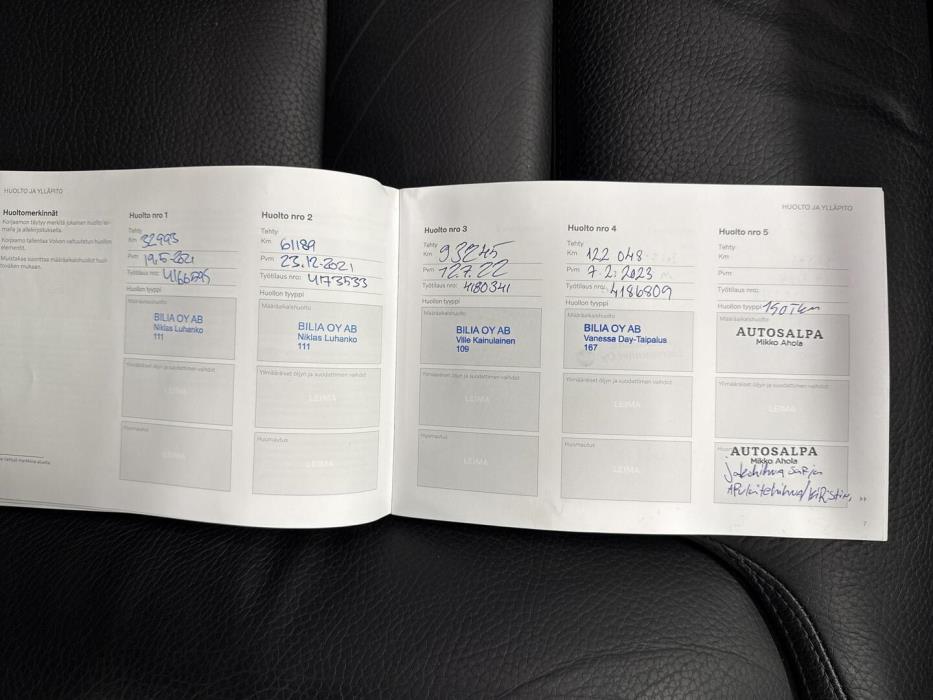 HUOLTO JA YLLÄPITO
Huoltomerkinnät
Huolto nro 1
Tehty
Km 32993
Pvm 19.5-2021
Työtilaus nro:
Huollon tyyppi
Määräaikaishuolto
BILIA OY AB
Niklas Luhanko
111
Ylimääräiset öljyn ja suodattimen vaihdot
LEIMA
Huomautus
LEIMA
Huolto nro 2
Tehty
Km 61189
Pvm 23.12-2021
Työtilaus nro: 4173533
Huollon tyyppi
Määräaikaishuolto
BILIA OY AB
Niklas Luhanko
111
Ylimääräiset öljyn ja suodattimen vaihdot
LEIMA
Huomautus
LEIMA
HUOLTO JA YLLÄPITO
Huolto nro 3
Tehty
Km 93245
Pvm 12.7.22
Työtilaus nro: 4180341
Huollon tyyppi
Määräaikaishuolto
BILIA OY AB
Ville Kainulainen
109
Ylimääräiset öljyn ja suodattimen vaihdot
LEIMA
Huomautus
LEIMA
Huolto nro 4
Tehty
Km 122 048
Pvm 7.2.2023
Työtilaus nro: 4186809
Huollon tyyppi
Määräaikaishuolto
BILIA OY AB
Vanessa Day-Taipalus
167
Ylimääräiset öljyn ja suodattimen vaihdot
LEIMA
Huomautus
LEIMA
Huolto nro 5
Tehty
Km
Pvm
Työtilaus nro:
Huollon tyyppi 150Tkm
AUTOSALPA
Mikko Ahola
Ylimääräiset öljyn ja suodattimen vaihdot
LEIMA
AUTOSALPA
Mikko Ahola
Jakohihna sarja
7